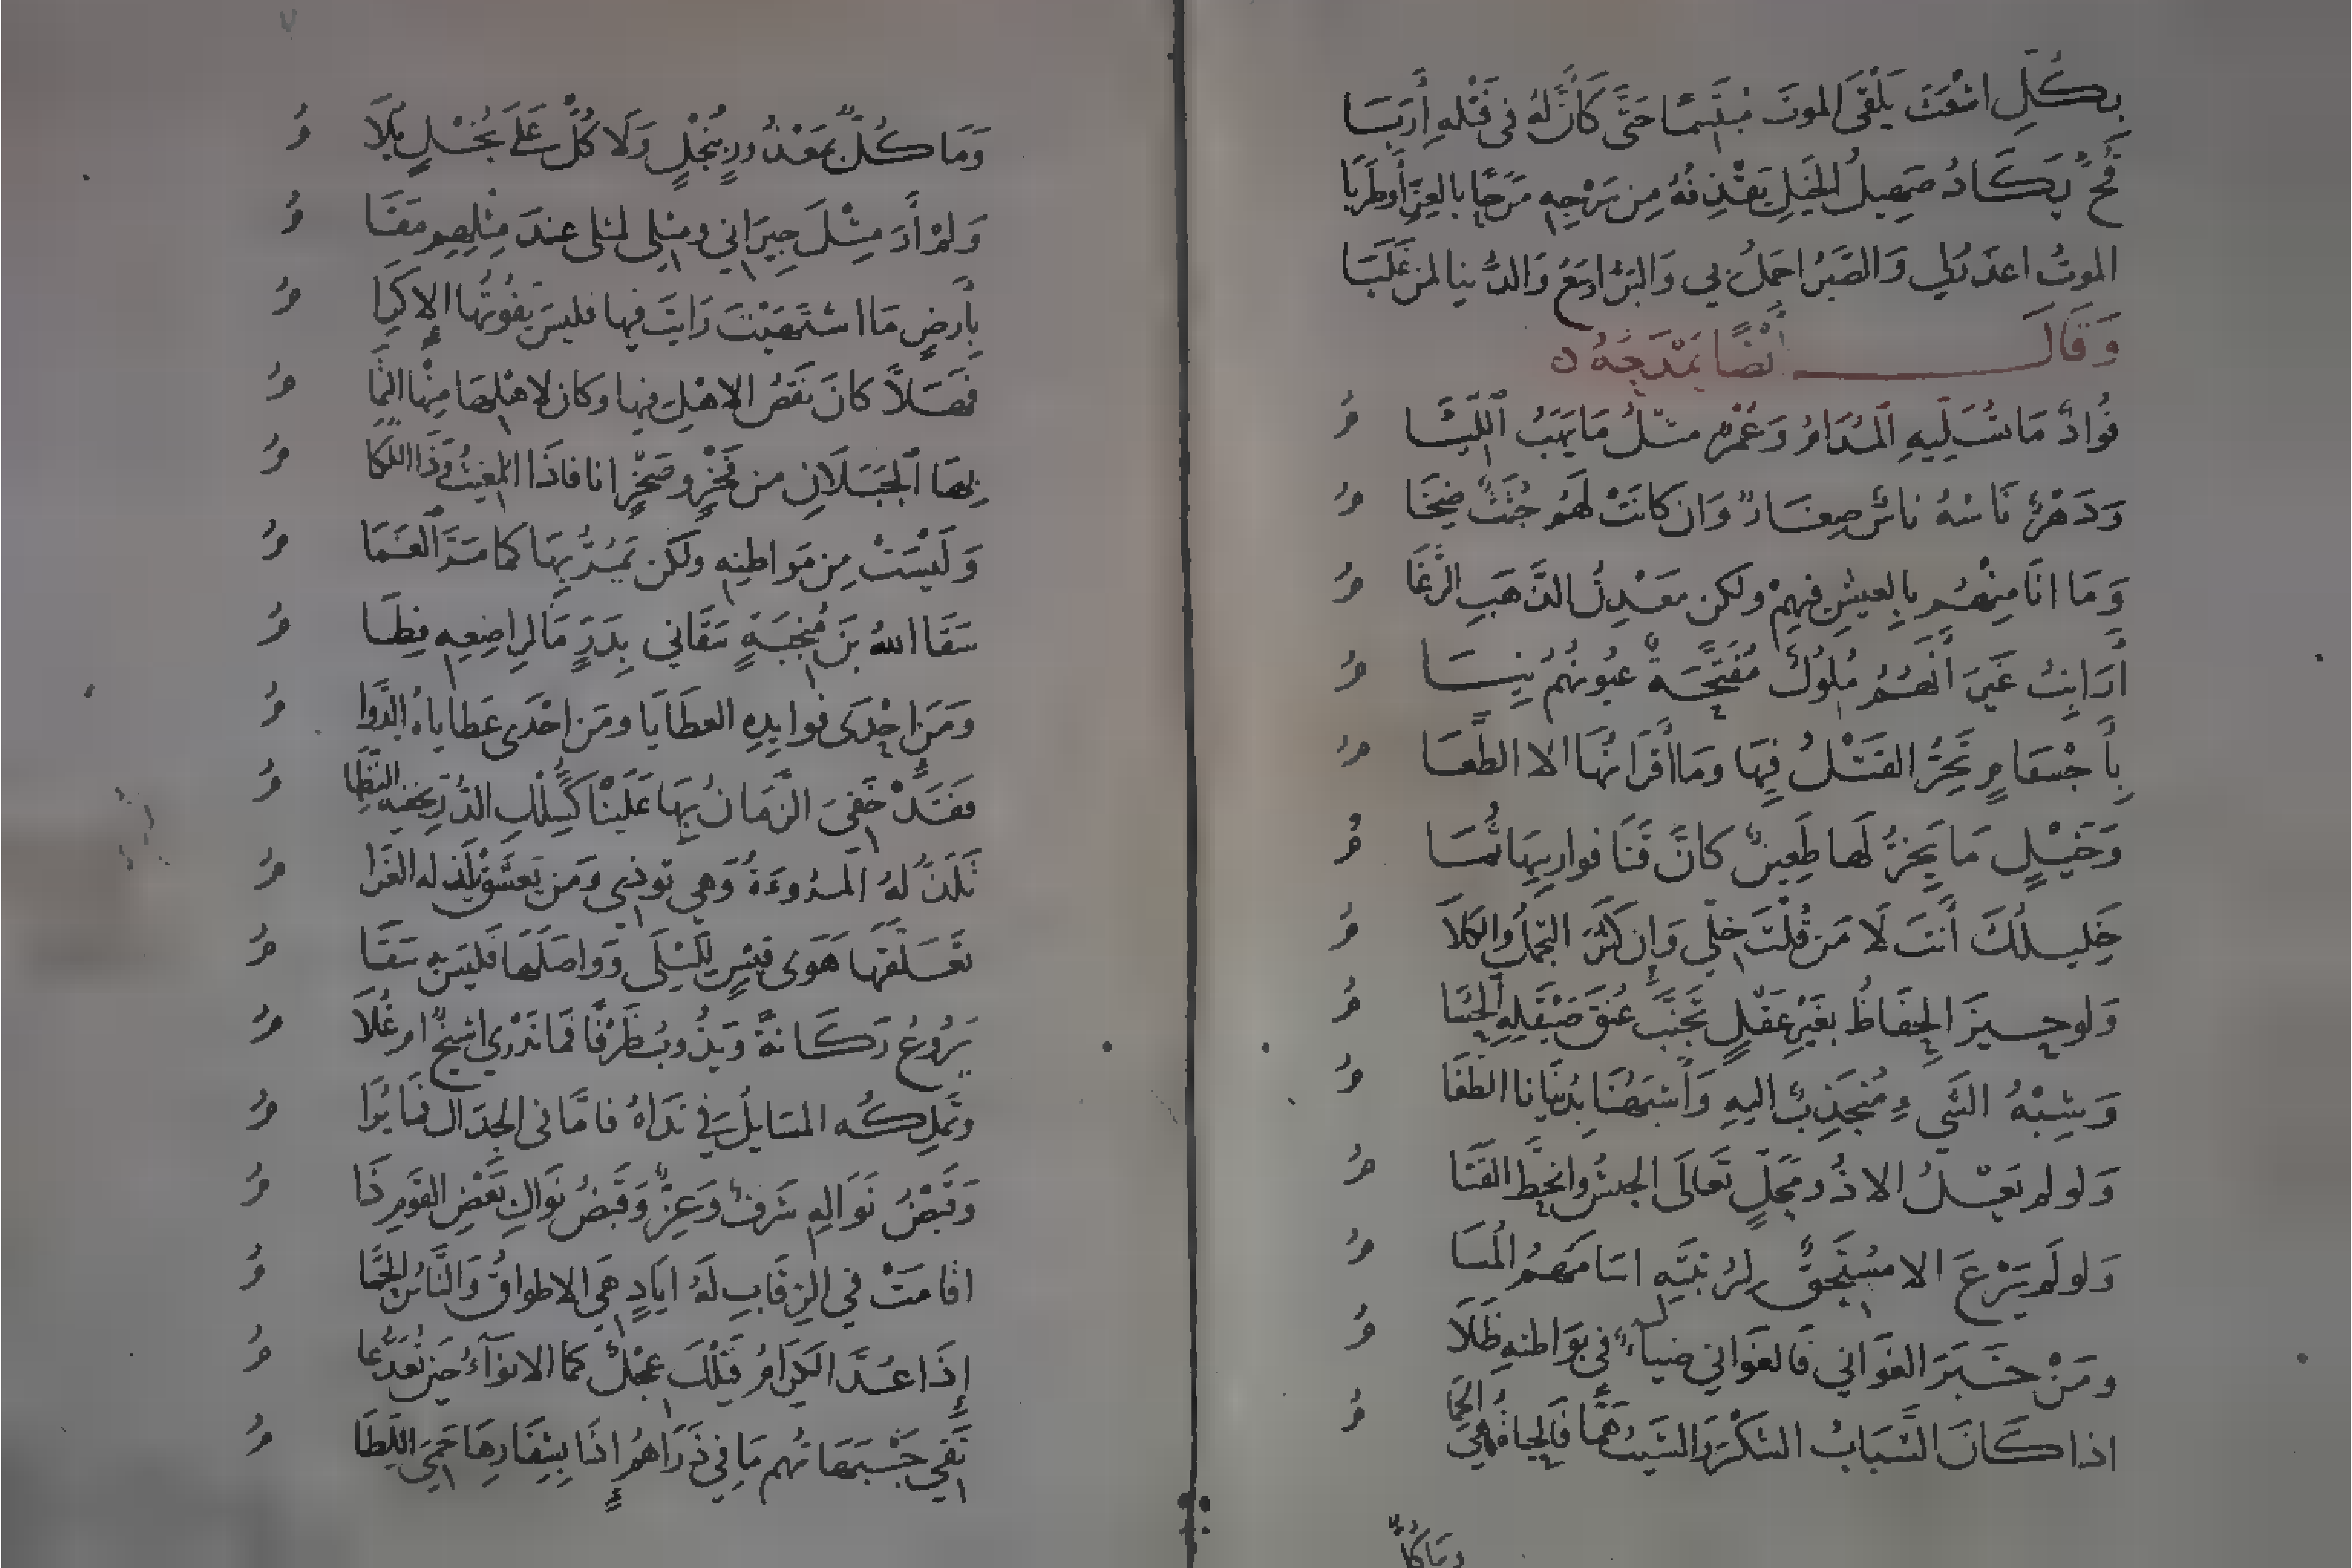 بِكُلِّ اشْعَثَ يَلْقَى الموتَ مُبْتَسِمًا حَتَّى كَأَنَّ لَهُ فى قَتْلِهِ أَرَبَا
قُحٍّ يَكَادُ صَهِيلُ الخَيْلِ يَقْذِفُهُ مِن سَرْجِهِ مَرَحًا بالعِزِّ أَوطَرَبَا
الموتُ اعذَرُ لي وَالصَّبْرُ اجمَلُ بي وَالبَرُّ اوسَعُ وَالدُّنيا لمن غَلَبَا
وَقَالَ أَيْضًا يَمْدَحُهُ ٥
فُؤادٌ مَا تُسَلِّيهِ المُدَامُ وَعُمْرٌ مثلُ مَا يَهَبُ اللِّئَا مُ
وَدَهْرٌ نَاسُهُ نَاسٌ صِغَارٌ وَان كانَتْ لهُم جُثَثٌ ضِخَا مُ
وَمَا انَا مِنْهُم بالعيشِ فيهِمْ ولكن مَعْدِنُ الذَّهَبِ الرَّغَا مُ
أَرَانِبُ غَيرَ أَنَّهُمُ مُلُوكٌ مُفَتَّحَةٌ عيُونُهُمُ نِيَا مُ
بِأَجْسَامٍ يَحَرُّ القَتْلُ فِيهَا وَمَا أَقْرَانُهَا الا الطَّعَا مُ
وَخَيْلٍ مَا يَخِرُّ لَها طَعِينٌ كَانَّ قَنَا فوارِسِهَا ثُمَا مُ
خَلِيلُكَ أَنتَ لَا مَن قُلْتَ خِلّي وَإِن كَثُرَ التجمُّلُ وَالكَلَا مُ
وَلو حِيزَ الحِفَاظُ بغَيرِ عَقْلٍ تَجَنَّبَ عُنقَ صَيْقَلِهِ الحُسَا مُ
وَشِبْهُ الشَّيءِ مُنْجَذِبٌ اليهِ وَأَشْبَهُنَا بِدُنْيَانا الطَّغَا مُ
وَلو لم يَعْلُ الا ذُو مَحَلٍّ تَعَالَى الجيشُ وانحَطَّ القَتَا مُ
وَلو لَم يَرْعَ الا مُسْتَحِقٌّ لِرُتْبَتِهِ اسَامَهُمُ المُسَا مُ
ومَنْ خَبَرَ الغَوَاني فَالغَوَاني ضِيَاءٌ فى بَوَاطنِهِ ظَلَا مُ
اذا كَانَ الشَّبَابُ السُّكْرَ وَالشَّيبُ هَمًّا فَالحيا ةُ هِيَ الحِمَا مُ
وَمَا كُلٌّ
وَمَا كُلٌّ بِمَعْذُورٍ بِبُخْلٍ وَلَا كُلٌّ عَلَى بُخْلٍ يُلَا مُ
وَلم أَرَ مِثْلَ جِيرَاني ومثلي لمثلي عندَ مِثْلِهِم مَقَا مُ
بأَرضٍ مَا اشْتَهَيْتَ رَايتَ فيها فليسَ يَفُوتُهَا إلا كِرَا مُ
فَهَلَّا كَانَ نَقْصُ الاهْلِ فيها وكان لاهْلِهَا مِنْهَا التَّمَا مُ
بِهَا الجَبَلَانِ من فَخْرٍ وصَخْرٍ انافا ذَا المُغِيثُ وَذَا اللُّكَا مُ
وَلَيْسَتْ مِن مَوَاطنِهِ ولكن يَمُرُّ بِهَا كما مَرَّ الغَمَا مُ
سَقَا اللهُ بنَ مُنجِبَةٍ سَقَاني بِدَرٍّ مَا لِراضِعِهِ فِطَا مُ
وَمَن احْدَى فوايدِهِ العطَايَا ومَن احْدَى عَطاياهُ الدَّوَا مُ
فقَدْ خَفِيَ الزَّمَانُ بِهَا عَلَيْنَا كَسِلْكِ الدُّرِّ يُخفِيهِ النِّظَا مُ
تَلَذُّ لَهُ المُروءَةُ وَهِي تُوذي وَمَن يَعشَقْ يَلذُّ له الغَرَا مُ
تَعَلَّقَهَا هَوَى قيْسٍ لِلَيْلَى وَوَاصَلَهَا فَليسَ بِهِ سَقَا مُ
يَرُوعُ رَكَانةً وَيَذُوبُ ظَرْفًا فَما نَدْرِي اشيخٌ ام غُلَا مُ
وتَملِكُه المسَايلُ في نَدَاهُ فامَّا فى الجِدَالِ فَمَا يُرَا مُ
وَقَبْضُ نَوَالِهِ شَرَفٌ وَعِزٌّ وَقَبضُ نَوَالِ بَعْضِ القَومِ ذَا مُ
اقَامَتْ في الرِّقَابِ لَهُ ايَادٍ هِيَ الاطواقُ وَالنَّاسُ الحَمَا مُ
إِذَا عُدَّ الكِرَامُ فَتلْكَ عِجْلٌ كما الانوَآءُ حينَ تُعَدُّ عَا مُ
تَقِي جَبَهَاتُهم مَا فِي ذَرَاهُمْ إِذَا بِشِفَارِهَا حَمِيَ اللِّطَا مُ